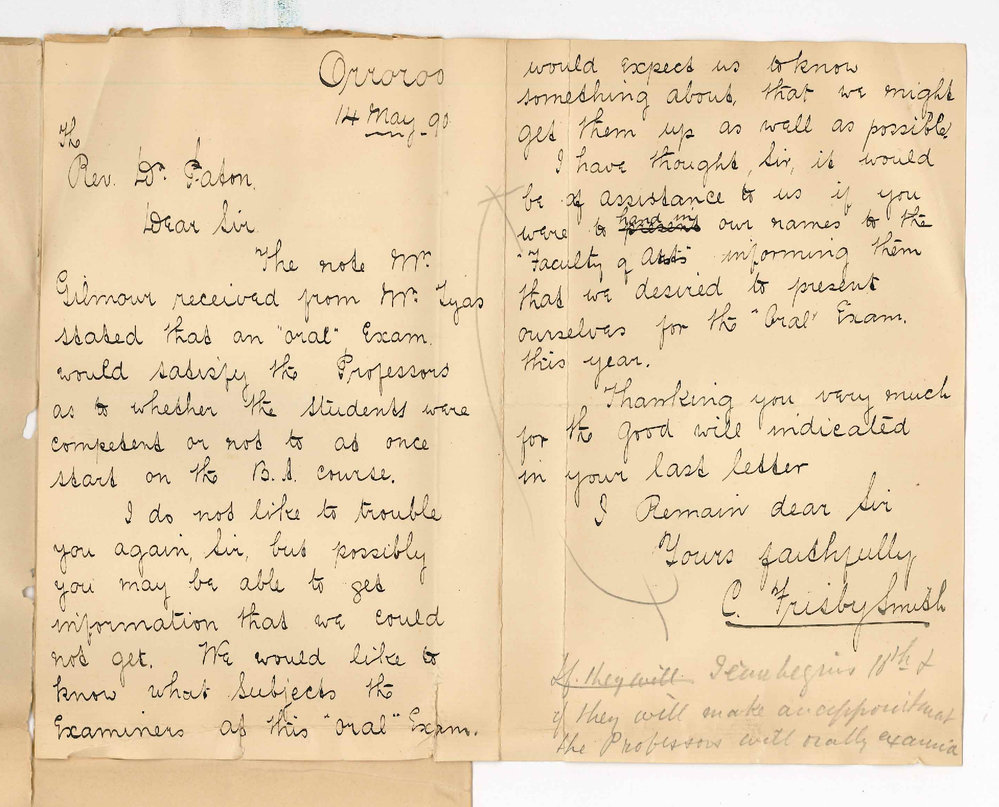 Orroroo
14 May - 90
Th
Rev. Dr. Paton.
Dear Sir.
The note Mr.
Gilmour received from Mr. Tyas
stated that an "oral" Exam.
would satisfy the Professors
as to whether the students were
competent or not to at once
start on the B.A. course.
I do not like to trouble
you again, Sir, but possibly
you may be able to get
information that we could
not get. We would like to
know what Subjects the
Examiners at this "oral" Exam.
would expect us to know
something about, that we might
get them up as well as possible
I have thought, Sir, it would
be of assistance to us if you
were to present hand in our names to the
"Faculty of Arts" informing them
that we desired to present
ourselves for the "Oral" Exam.
this year.
Thanking you very much
for the good will indicated
in your last letter
I Remain dear Sir
Yours faithfully
C. Frisby Smith
If they will begins &
if they will make an appointment
the Professors will orally examine